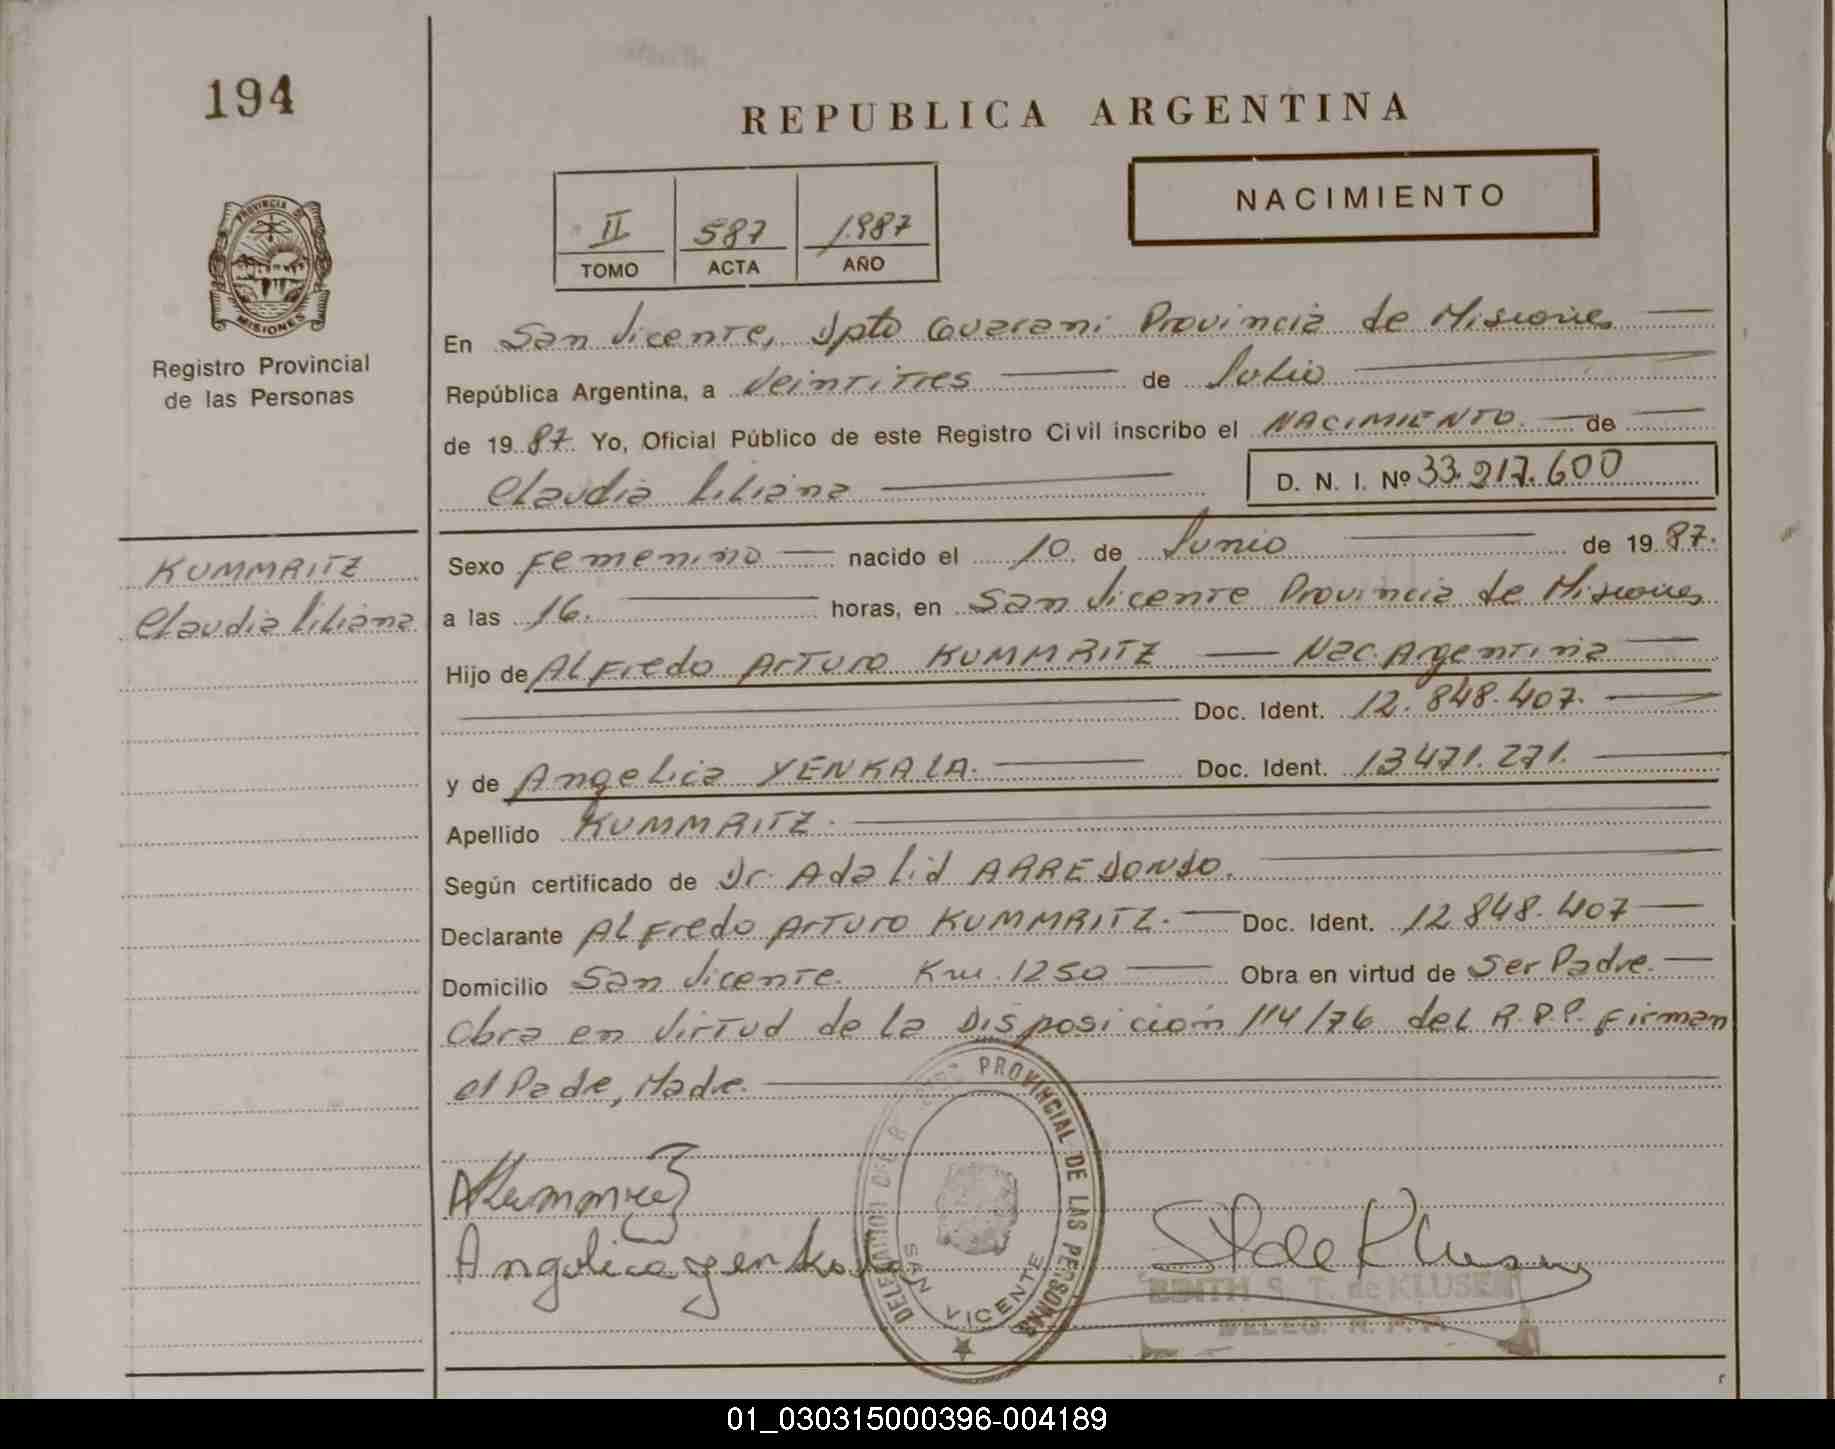 194
REPUBLICA ARGENTINA
PROVINCIA DE
MISIONES
Registro Provincial
de las Personas
II 587 1.987
TOMO ACTA AÑO
NACIMIENTO
En San Vicente, Dpto Guarani Provincia de Misiones
República Argentina, a Veintitres de Julio
de 19 87. Yo, Oficial Público de este Registro Civil inscribo el NACIMIENTO de
Claudia Liliana D. N. I. Nº 33.217.600
KUMMRITZ
Claudia Liliana
Sexo Femenino nacido el 10 de Junio de 19 87.
a las 16. horas, en San Vicente Provincia de Misiones
Hijo de Alfredo Arturo KUMMRITZ Nac. Argentina
Doc. Ident. 12.848.407.
y de Angelica YENKALA. Doc. Ident. 13471.271.
Apellido KUMMRITZ.
Según certificado de Dr. Adalid ARREDONDO.
Declarante Alfredo Arturo KUMMRITZ. Doc. Ident. 12.848.407
Domicilio San Vicente. Km. 1250 Obra en virtud de Ser Padre.
Obra en virtud de la Disposición 114/76 del R.P.P. Firman
el Padre, Madre.
AKummritz
Angelica yenkala
DELEGACION DEL R PROVINCIAL DE LAS PERSONAS
SAN VICENTE
de Klusen
EDITH S. T. de KLUSEN
DELEG. R. P. P.
01_030315000396-004189